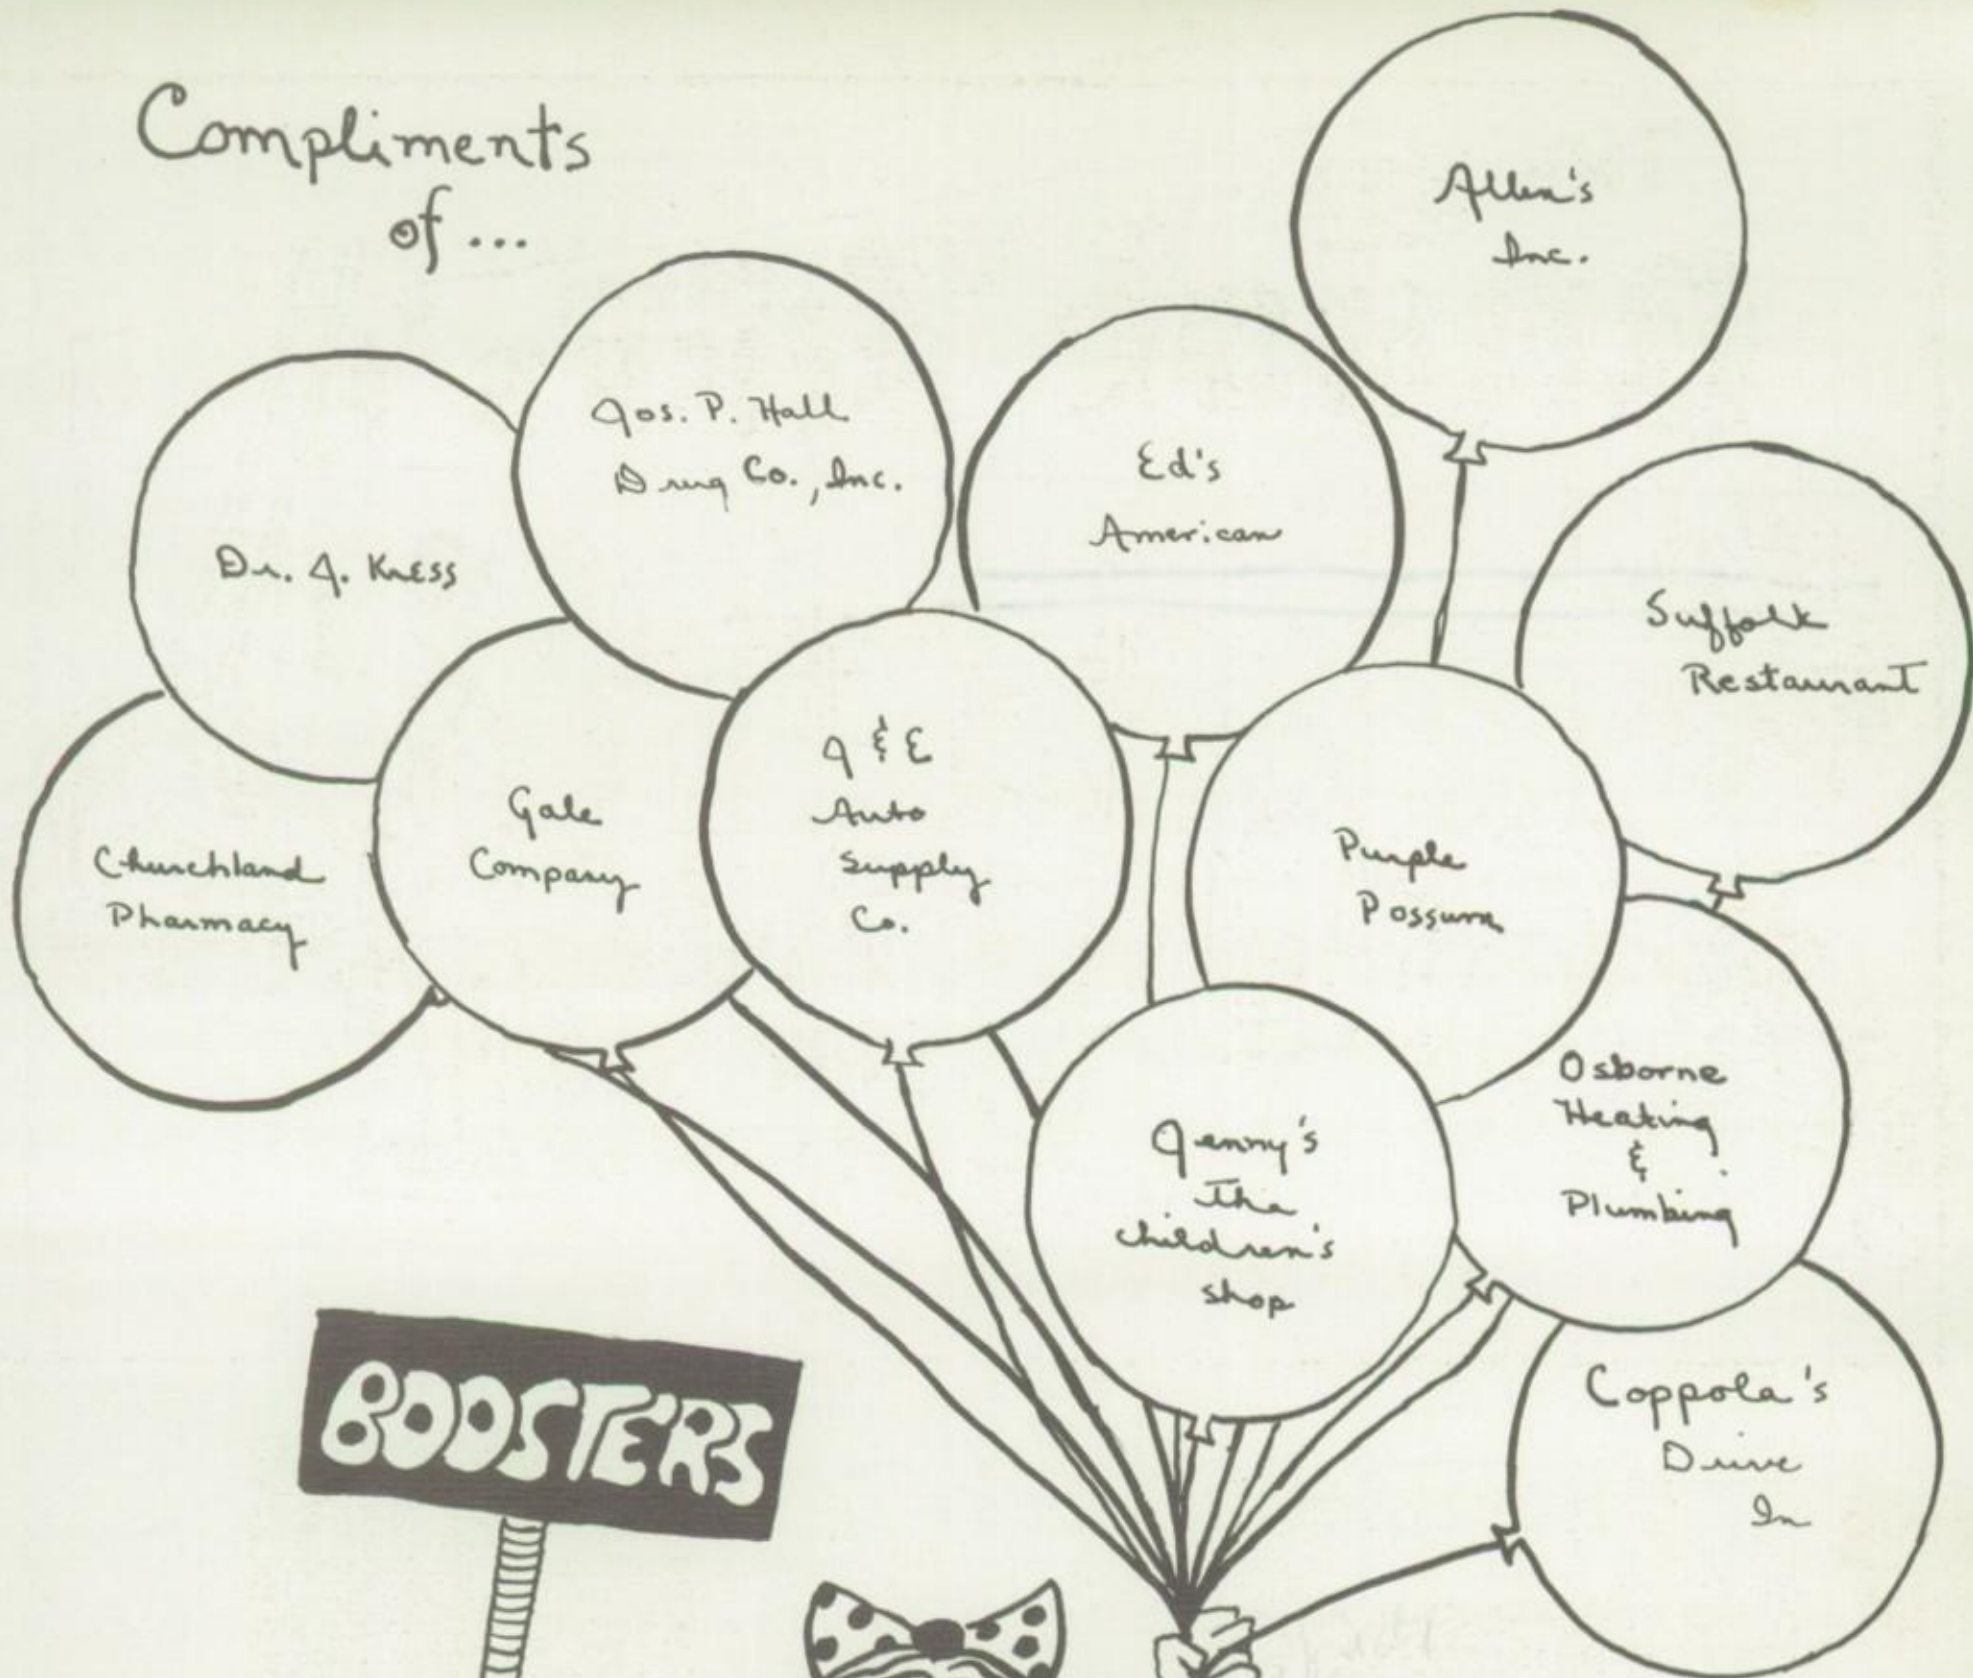 Compliments
of ...
Allen's
Inc.
Jos. P. Hall
Drug Co., Inc.
Ed's
American
Dr. J. Kress
Suffolk
Restaurant
Churchland
Pharmacy
Gale
Company
J & E
Auto
Supply
Co.
Purple
Possum
Osborne
Heating
&
Plumbing
Jenny's
The
children's
shop
Coppola's
Drive
In
BOOSTERS